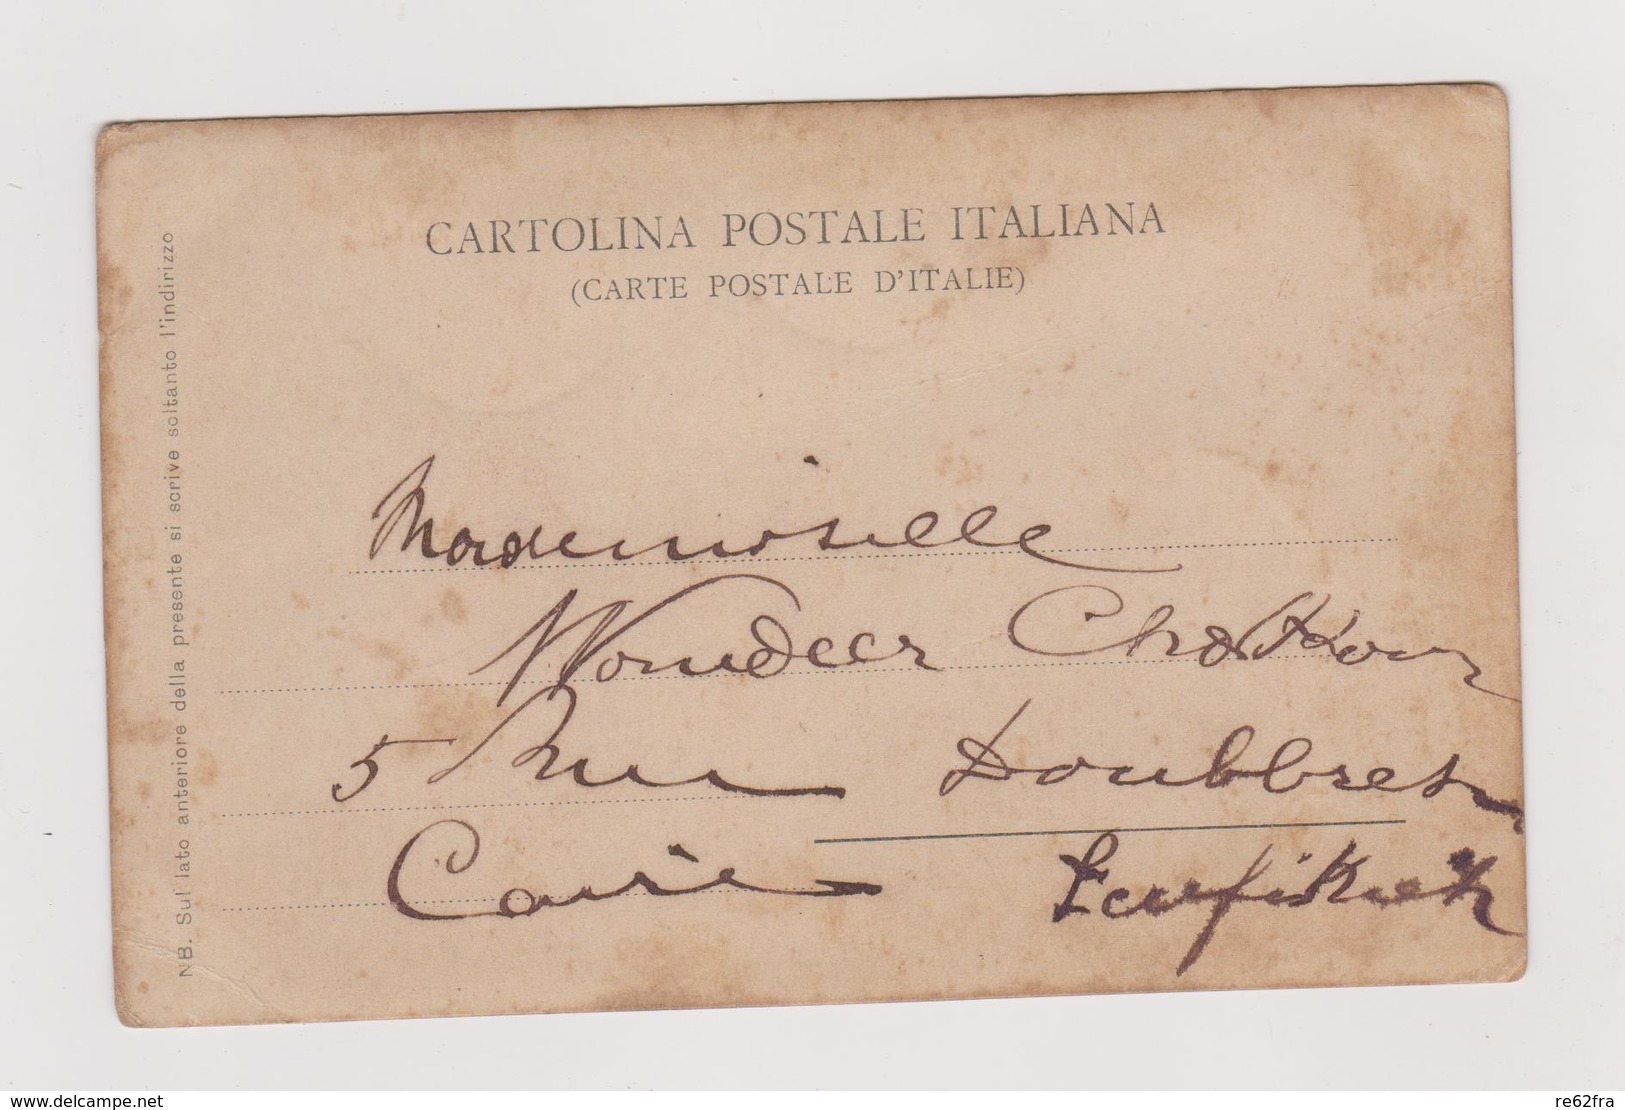 CARTOLINA POSTALE ITALIANA
(CARTE POSTALE D'ITALIE)
NB. Sul lato anteriore della presente si scrive soltanto l'indirizzo
Mademoiselle
5 Rue Doubbreh
Caire
www.delcampe.net
re62fra